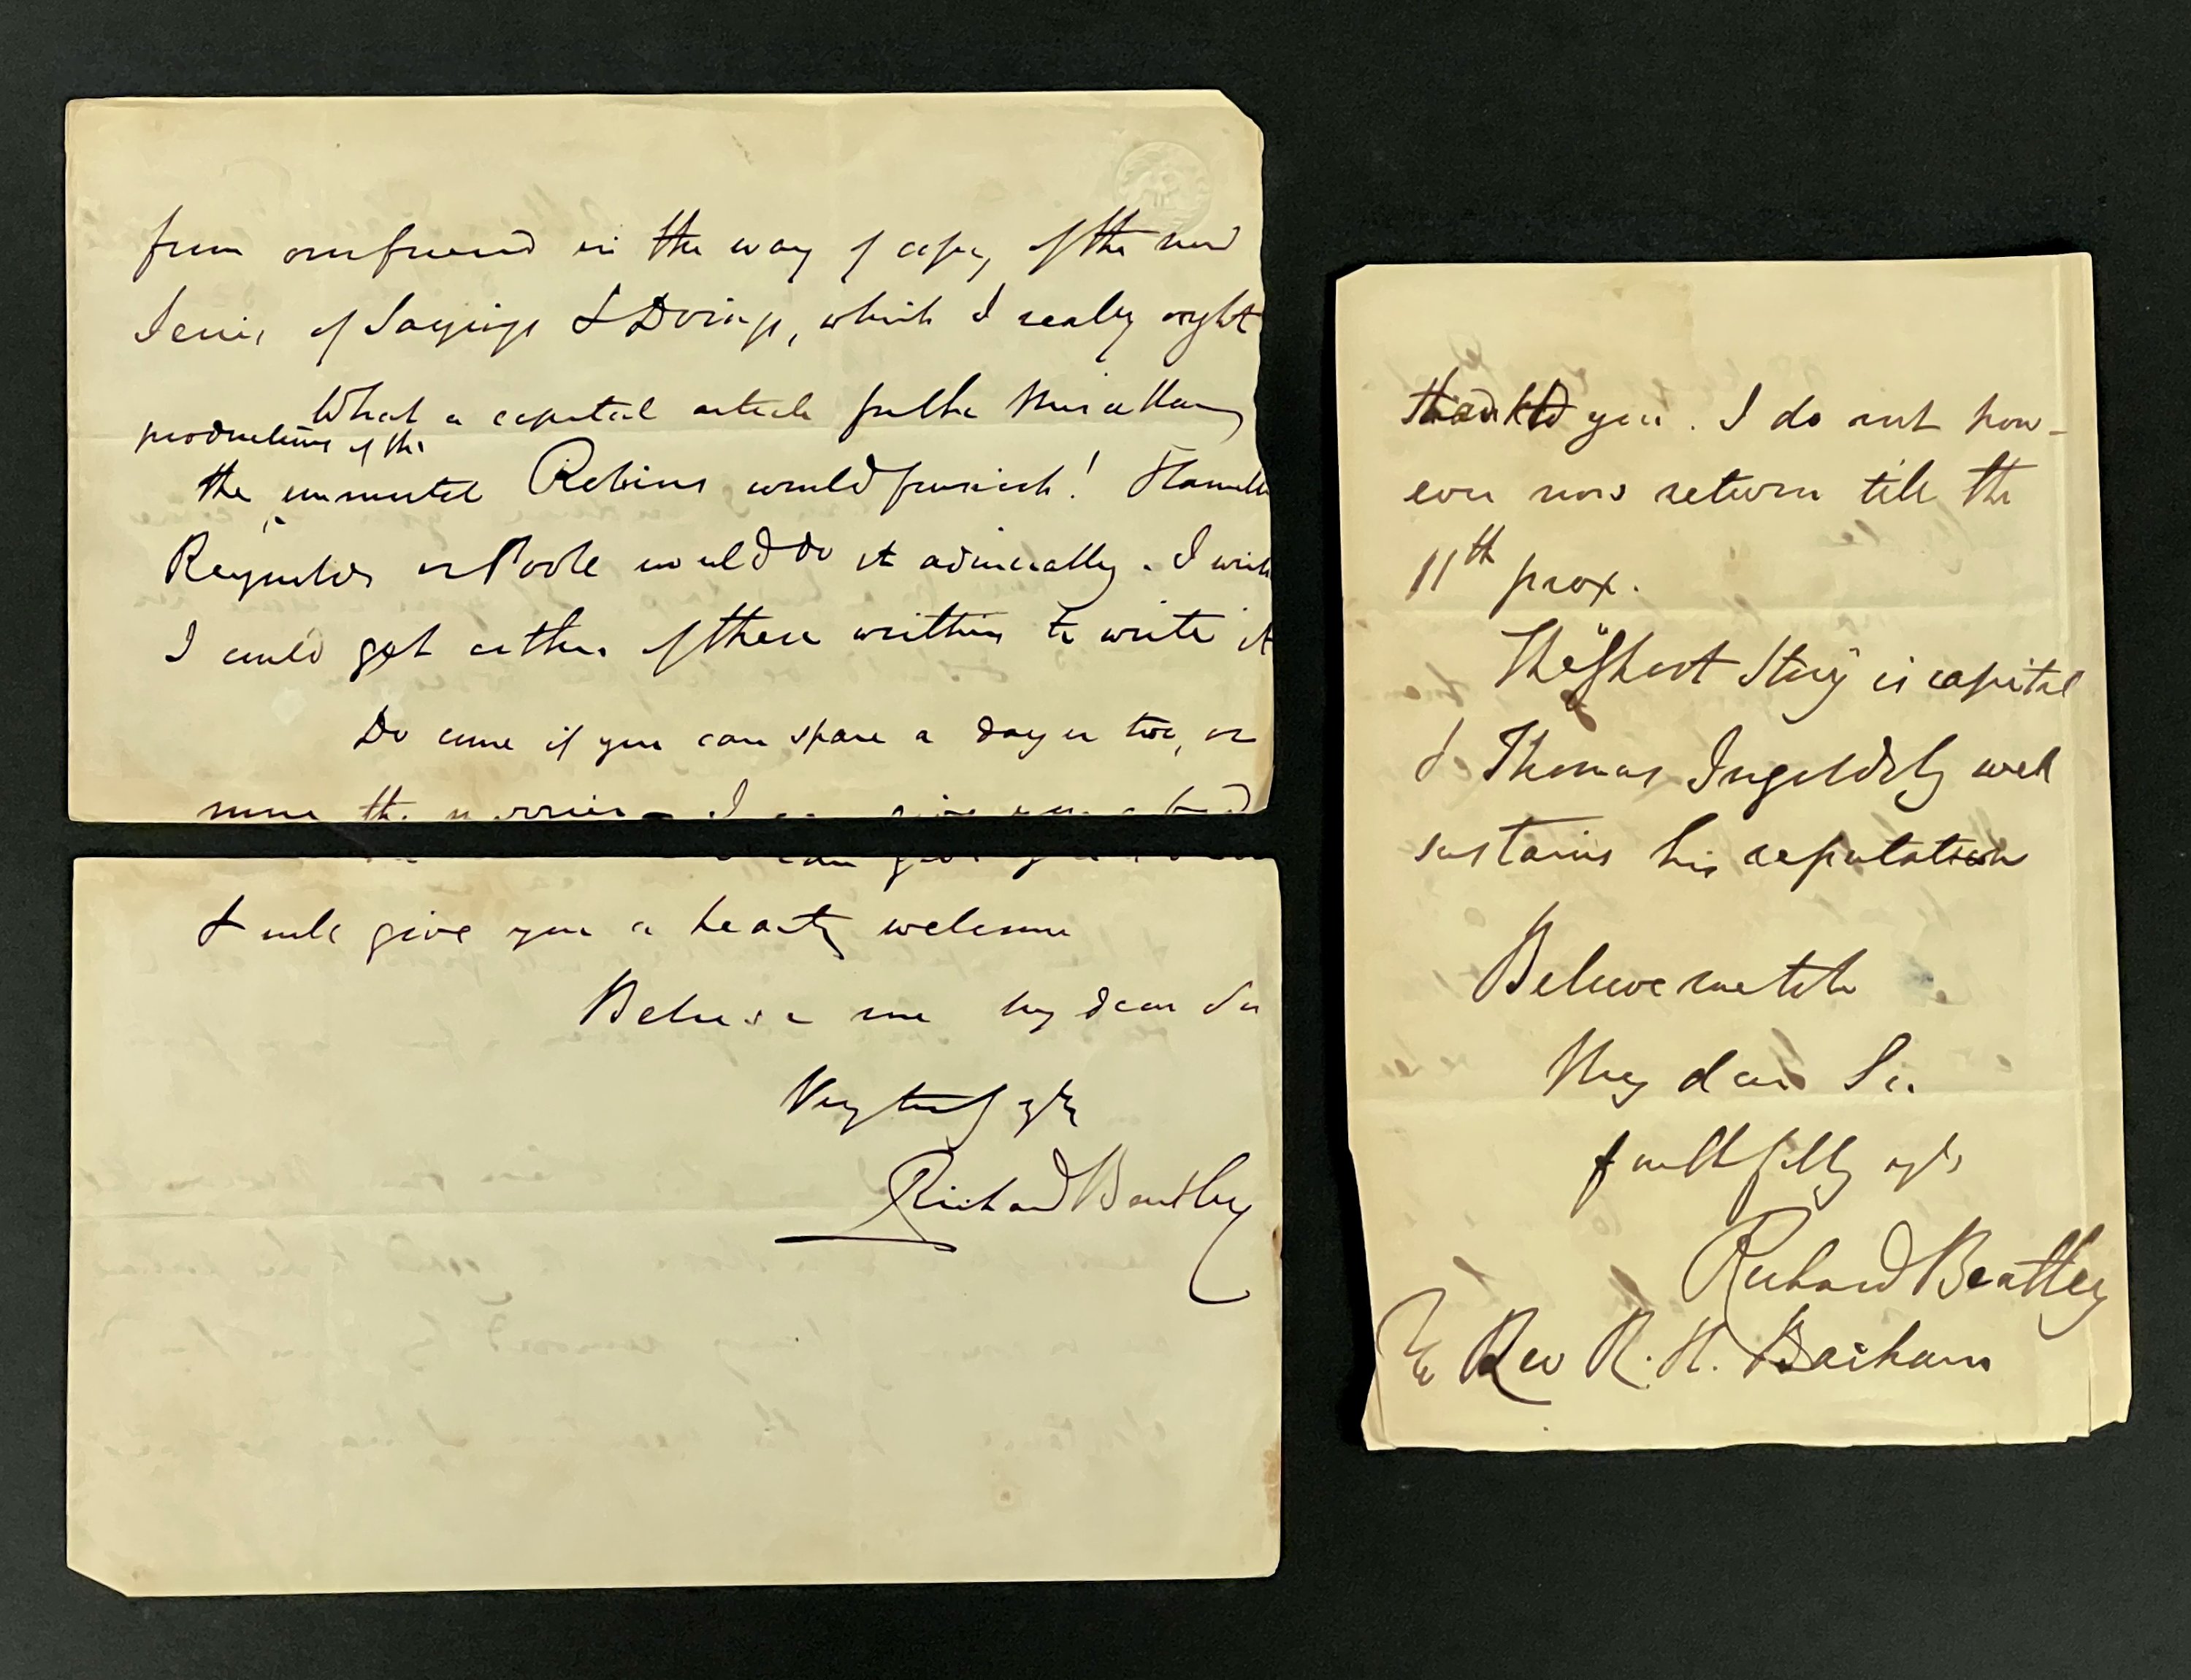 from our friend in the way of copy, of the new
Series of Sayings & Doings, which I really ought
What a capital article for the Miscellany
productions of the
the immortal Robins would furnish! Hamilton
Reynolds or Poole would do it admirably. I wish
I could get either of these writers to write it
Do come if you can spare a day or two, or
more the merrier – I can give you a bed
& will give you a hearty welcome
Believe me my dear Sir
Very truly yrs
Richard Bentley
thanked you. I do not how-
ever now return till the
11th prox.
The "Ghost Story" is capital
& Thomas Ingoldsby well
sustains his reputation
Believe me to be
My dear Sir
faithfully yrs
Richard Bentley
Rev R. H. Barham